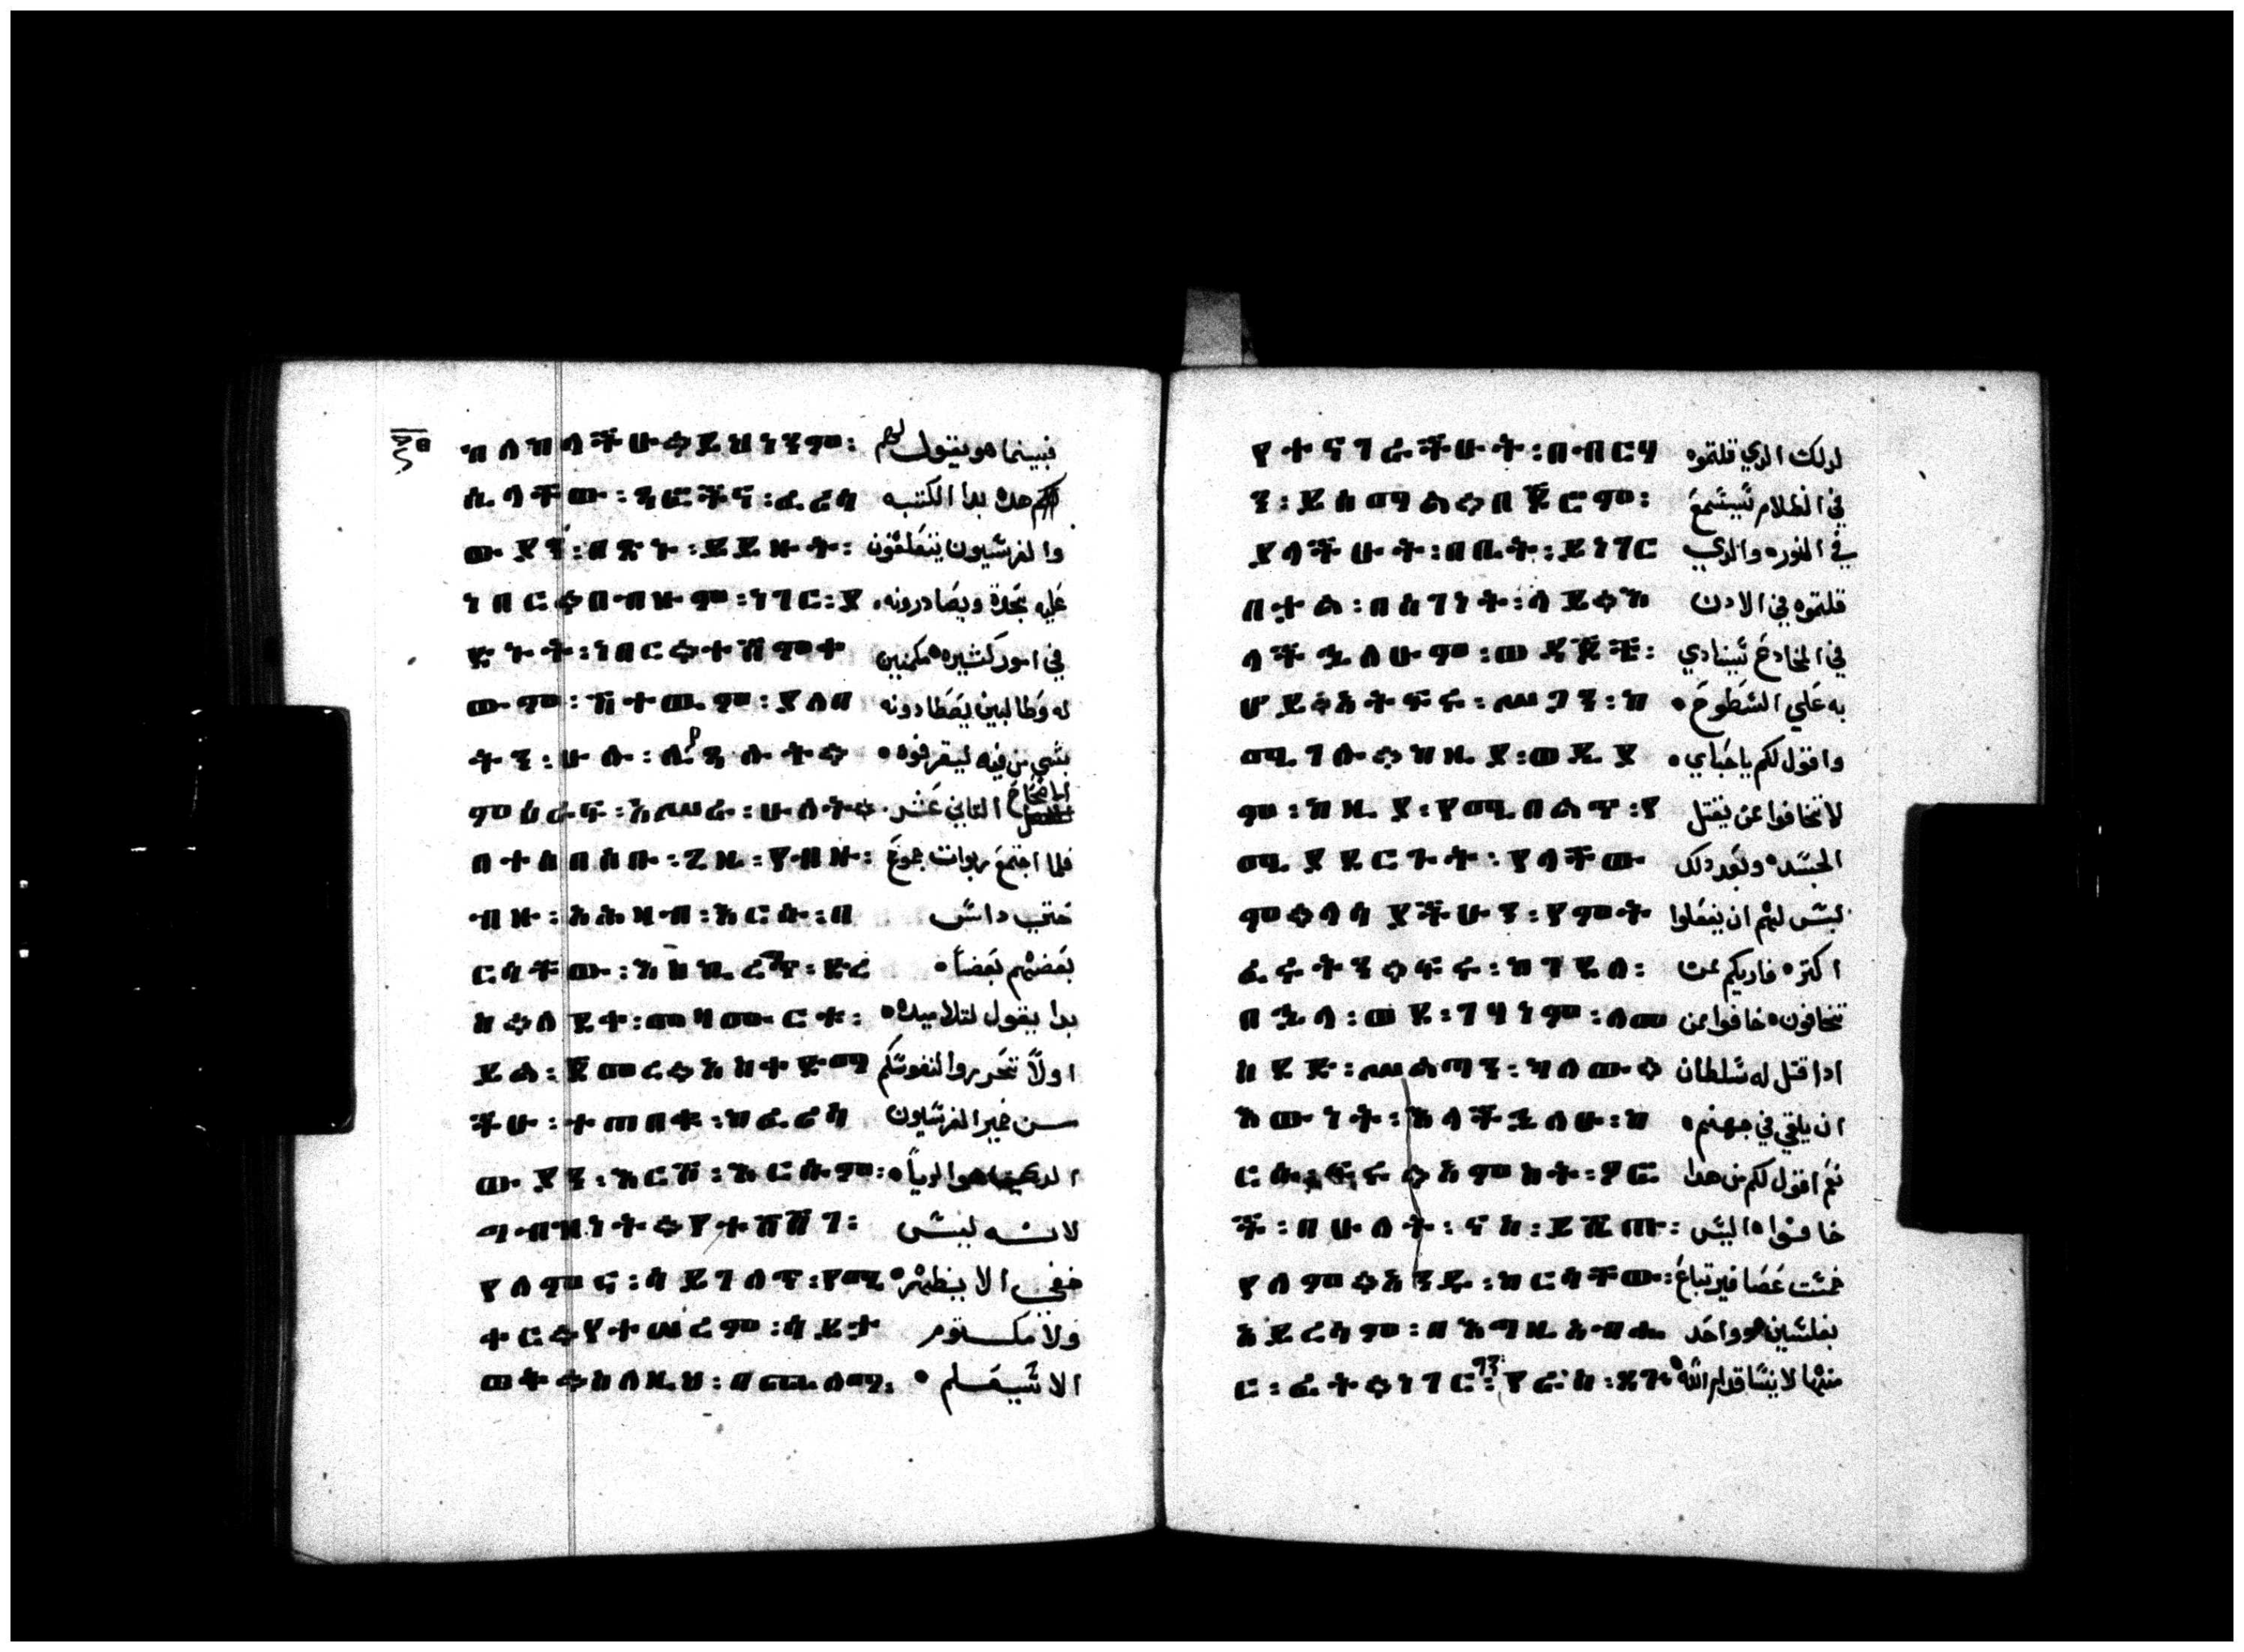 ኪለከላችሁ። ይህንንም፡ فبينما هو يقول لهم
ሲላቸው፡ ጻፎችና፡ ፈሪሳ هده بدا الكتبه
ውያን፡ በጽኑ፡ ይይዙት፡ والفرسيون
ነበር። በብዙም፡ ነገር፡ ያ عليه بحدة ويصادرونه
ጽኑት፡ ነበር። ተሸምተ في امور كثيره مكمنين
ውም፡ ሽተውም፡ ያለበ له وطالبين يصطادونه
ትን፡ ሁሉ፡ ሊ ሉት። بشي من فيه ليقرفوه
ምዕራፍ፡ አሥራ፡ ሁለት። الاصحاح التاني عشر
በተሰበሰቡ፡ ጊዜ፡ የብዙ፡ فلما اجتمع ربوات جموع
ብዙ፡ አሕዛብ፡ እርሱ፡ በ حتي داس
ርሳቸው፡ እስኪራገጥ፡ ድረ بعضهم بعضاً
ስ። ለደቀ፡ መዛሙርቱ፡ بدا يقول لتلاميده
ይል፡ ጀመረ። እስተ ማ اولاً تحرروا لنفوسكم
ችሁ፡ ተጠበቁ፡ ከፈሪሳ من خمير الفرسيون
ውያን፡ እርሾ፡ እርሱም፡ الدي هو الريا
ግብዝነት። የተሸሸገ፡ لانه ليس
የለምና፡ ሳይገለጥ፡ የሚ خفي الا يظهر
ቀር። የተሠረም፡ ሳይታ ولا مكتوم
ወቅ። ስለዚህ፡ በጨለማ፡ الا سيعلم
የተናገራችሁት፡ በብርሃ لدلك الدي قلتموه
ን፡ ይሰማል። በጆሮም፡ في الظلام سيسمع
ያላችሁት፡ በቤት፡ ይነገር في النور والدي
በታል፡ በሰገነት፡ ላይ። እ قلتموه في الادن
ላችኋለሁም፡ ወዳጆቼ፡ في المخادع سينادي
ሆይ። አትፍሩ፡ ሥጋን፡ ከ به علي السطوح
ሚገሉ። ከዚያ፡ ወዲያ واقول لكم يا احباي
ም፡ ከዚያ፡ የሚበልጥ፡ የ لا تخافوا عن يقتل
ሚያደርጉት፡ የላቸው الجسد وبعد دلك
ም። ላሳያችሁን፡ የምት ليس لهم ان يفعلوا
ፈሩትን። ፍሩ፡ ከገደለ፡ اكتر فاريكم من
በኋላ፡ ወደ፡ ገሃነም፡ ለመ تخافون خافوا من
ስደድ፡ ሥልጣን፡ ካለው። ادا قتل له سلطان
እውነት፡ እላችኋለሁ፡ ከ ان يلقي في جهنم
ርሱ፡ ፍሩ። አምስት፡ ዎር نعم اقول لكم من هدا
ች፡ በሁለት፡ ናስ፡ ይሸጡ፡ خافوا اليس
የለም። አንድ፡ ከርሳቸው፡ خمست عصافير تباع
አይረሳም፡ በእግዚአብሔ بفلسين وواحد
ር፡ ፊት። ነገር፡ ግን፡ የራስ፡ ጸጉ منها لا ينسا قدام الله